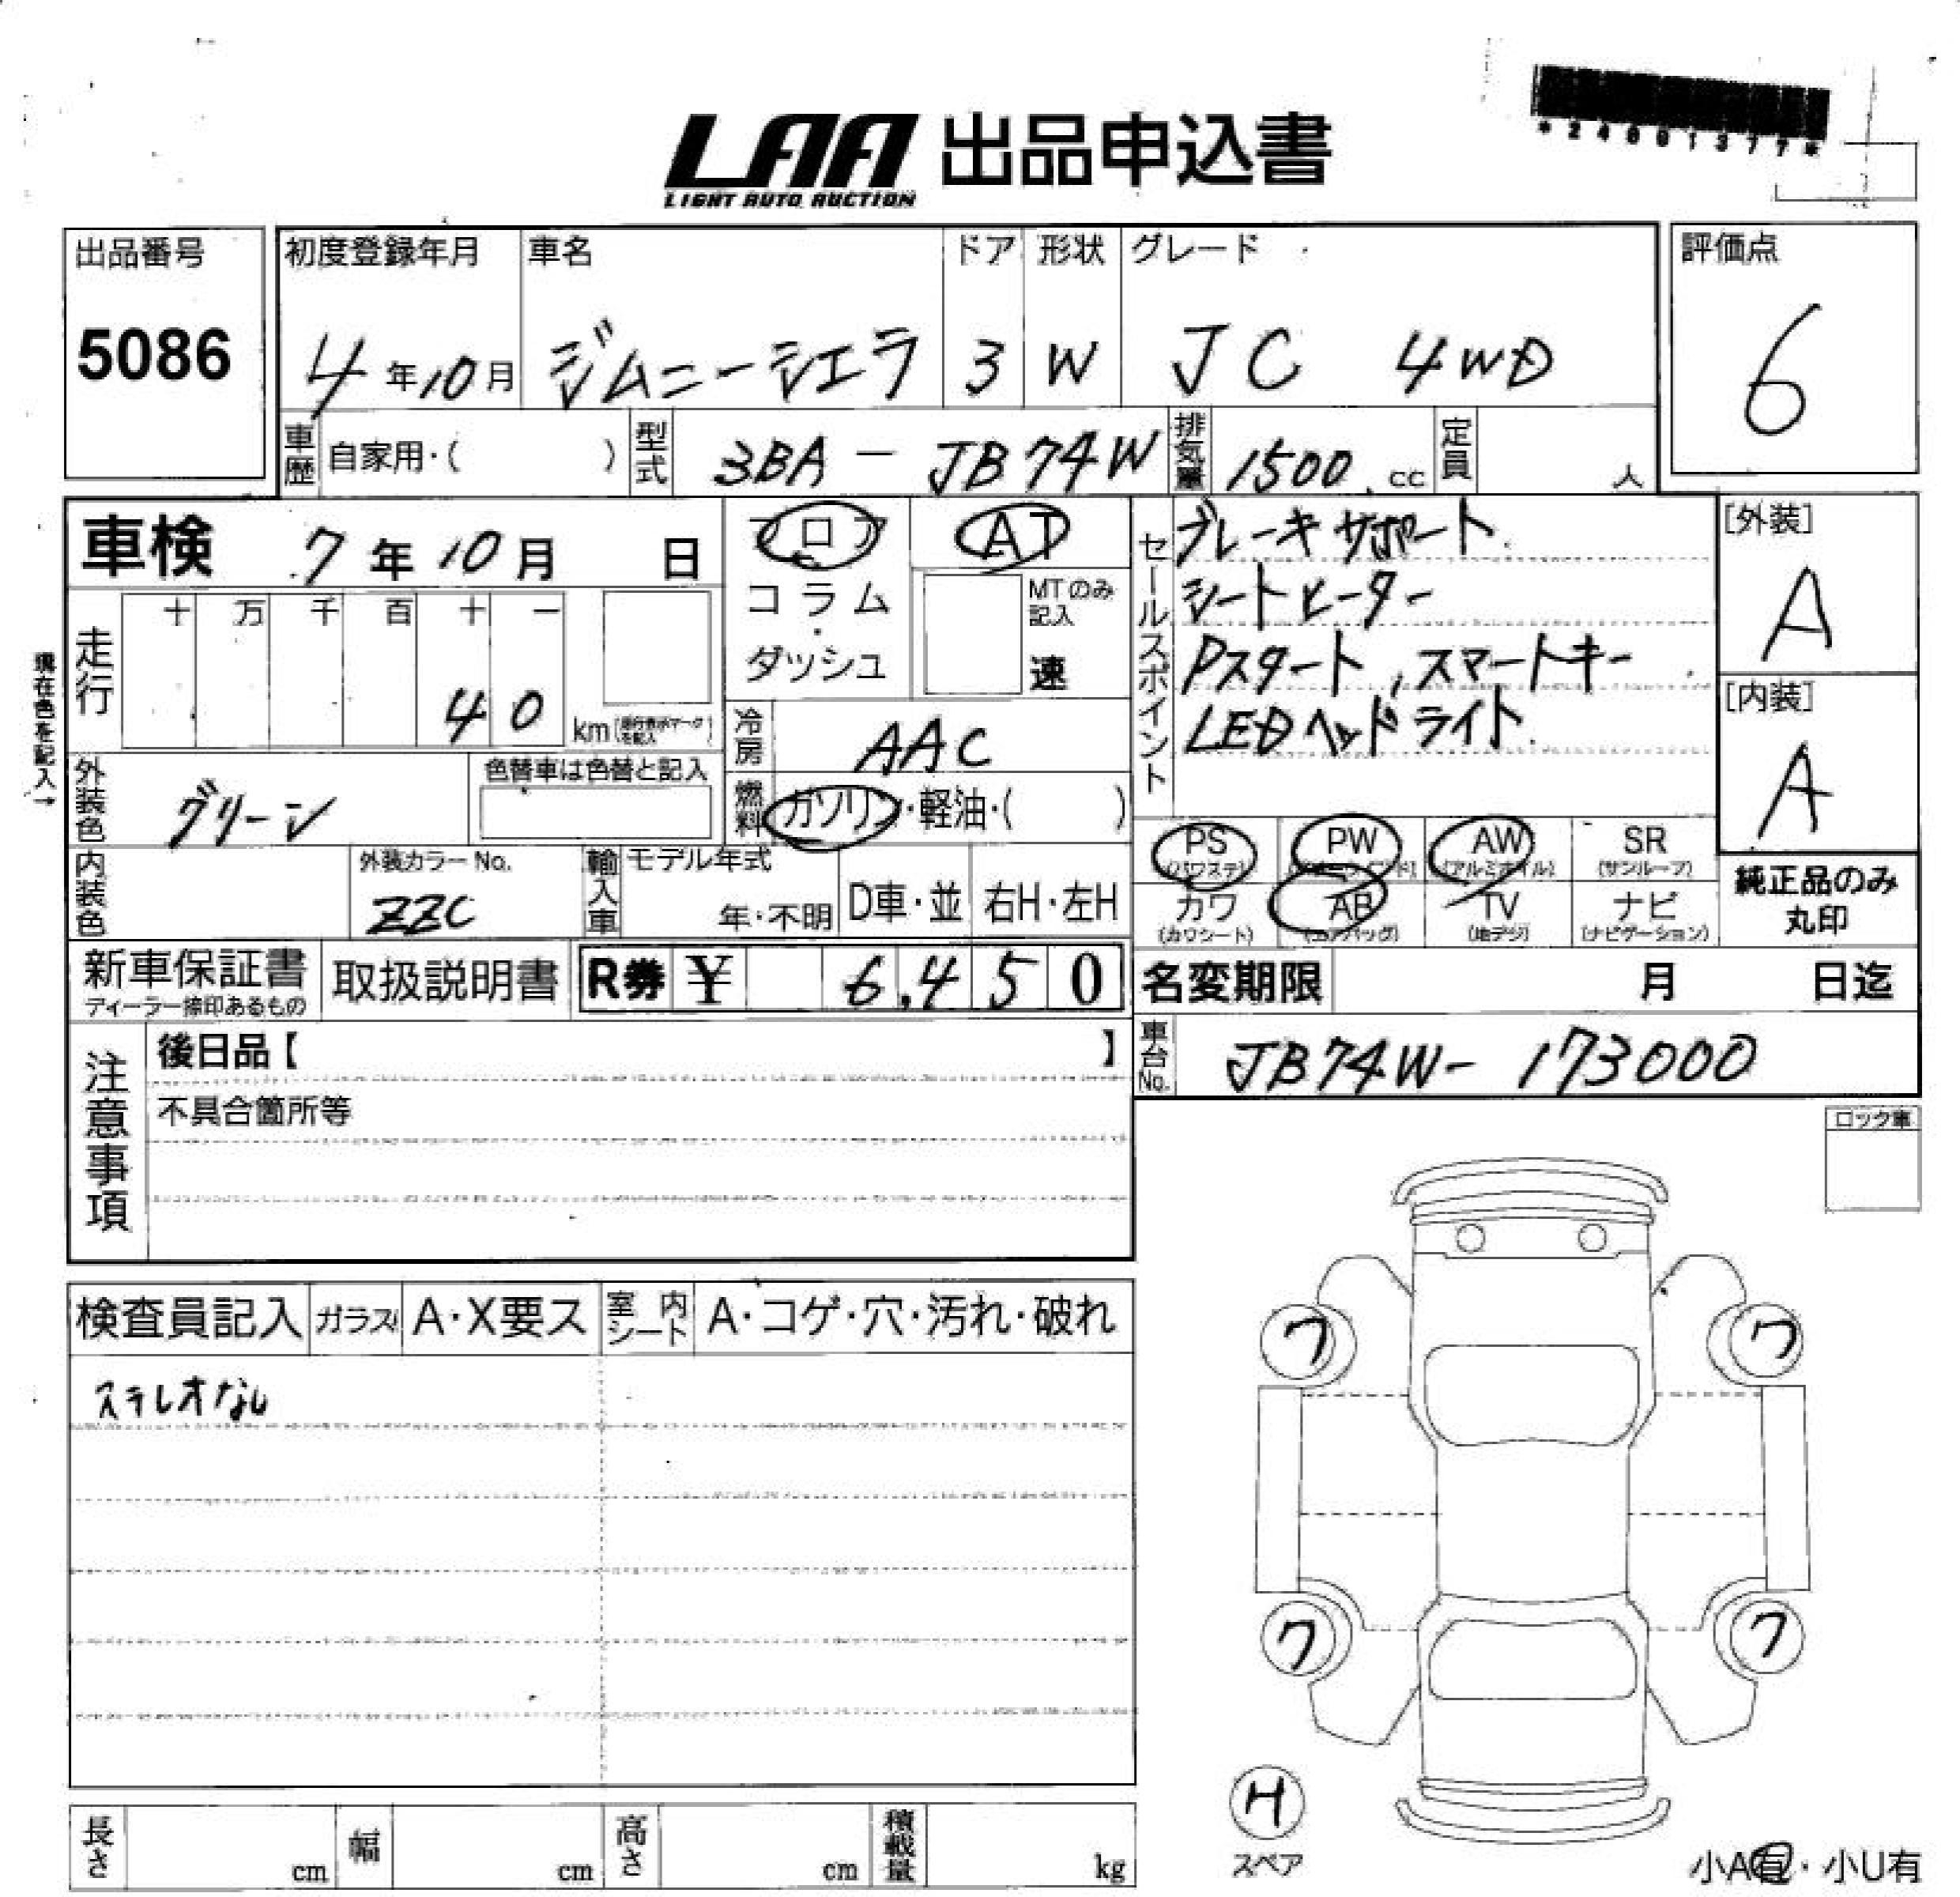 *24001377*
LAA 出品申込書
LIGHT AUTO AUCTION
出品番号
5086
初度登録年月 車名 ドア 形状 グレード
4年10月 ジムニーシエラ 3 W JC 4WD
評価点
6
車歴 自家用・( ) 型式 3BA-JB74W 排気量 1500.cc 定員 人
車検 7年10月 日
フロア
コラム
・
ダッシュ
AT
MTのみ
記入
速
セールスポイント
ブレーキサポート
シートヒーター
Pスタート,スマートキー
LEDヘッドライト
[外装]
A
[内装]
A
現在色を記入→
走行
十 万 千 百 十 一
4 0 km
冷房 AAC
外装色 グリーン
色替車は色替と記入
燃料 ガソリン・軽油・( )
内装色
外装カラーNo.
ZZC
輸入車 モデル年式
年・不明 D車・並 右H・左H
PS PW AW SR
(パワステ) (パワーウインド) (アルミホイル) (サンルーフ)
カワ AB TV ナビ
(カワシート) (エアバッグ) (地デジ) (ナビゲーション)
純正品のみ
丸印
新車保証書 取扱説明書 R券 ¥ 6,450
ディーラー捺印あるもの
名変期限 月 日迄
車台No. JB74W-173000
注意事項
後日品【 】
不具合箇所等
ロック車
検査員記入 ガラス A・X要ス 室内シート A・コゲ・穴・汚れ・破れ
ステレオなし
ワ ワ
ワ ワ
H
スペア
長さ cm 幅 cm 高さ cm 積載量 kg
小A有・小U有